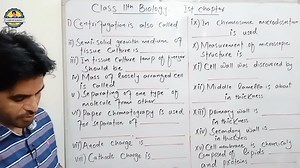 Class 11th Biology 1st chapter
i) Centrifugation is also called
ii) Semi-solid growth medium of
tissue culture is
iii) In tissue culture temp of fungus
should be
iv) Mass of loosely arranged cell
is called
v) Separating of one type of
molecule from other
vi) Paper chromatography is used
for separation of
vii) Anode charge is
viii) Cathode charge is
ix) In chromosome microdissection
is used
x) Measurement of microscopic
structure is
xi) Cell wall was discovered by
xii) Middle lamella is about
in thickness
xiii) Primary wall is
in thickness
xiv) Secondary wall is
in thickness
xv) Cell membrane is chemically
composed of lipids
and proteins